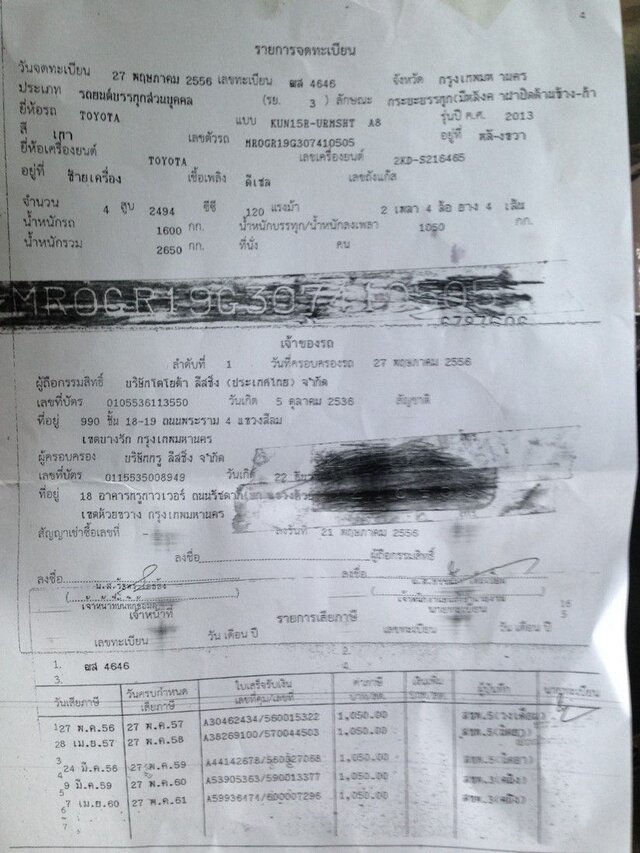 4
รายการจดทะเบียน
วันจดทะเบียน 27 พฤษภาคม 2556 เลขทะเบียน ผส 4646 จังหวัด กรุงเทพมหานคร
ประเภท รถยนต์บรรทุกส่วนบุคคล (รย. 3 ) ลักษณะ กระบะบรรทุก
ยี่ห้อรถ TOYOTA แบบ KUN15R-URMSHT A8 รุ่นปี ค.ศ. 2013
สี เทา เลขตัวรถ MROGR19G307410505 อยู่ที่
ยี่ห้อเครื่องยนต์ TOYOTA เลขเครื่องยนต์ 2KD-S216465
อยู่ที่ ซ้ายเครื่อง เชื้อเพลิง ดีเซล เลขถังแก๊ส
จำนวน 4 สูบ 2494 ซีซี 120 แรงม้า 2 เพลา 4 ล้อ ยาง 4 เส้น
น้ำหนักรถ 1600 กก. น้ำหนักบรรทุก/น้ำหนักลงเพลา 1050 กก.
น้ำหนักรวม 2650 กก. ที่นั่ง คน
MROGR19G307410505
เจ้าของรถ
ลำดับที่ 1 วันที่ครอบครองรถ 27 พฤษภาคม 2556
ผู้ถือกรรมสิทธิ์ บริษัทโตโยต้า ลีสซิ่ง (ประเทศไทย) จำกัด
เลขที่บัตร 0105536113550 วันเกิด 5 ตุลาคม 2536 สัญชาติ
ที่อยู่ 990 ชั้น 18-19 ถนนพระราม 4 แขวงสีลม
เขตบางรัก กรุงเทพมหานคร
ผู้ครอบครอง บริษัทกรู ลีสซิ่ง จำกัด
เลขที่บัตร 0115535008949 วันเกิด 22
ที่อยู่ 18 อาคารทรูทาวเวอร์ ถนนรัชดา
เขตห้วยขวาง กรุงเทพมหานคร
สัญญาเช่าซื้อเลขที่ - ลงวันที่ 21 พฤษภาคม 2556
ลงชื่อ ผู้ถือกรรมสิทธิ์
ลงชื่อ
เจ้าหน้าที่
รายการเสียภาษี
เลขทะเบียน วัน เดือน ปี เลขทะเบียน วัน เดือน ปี
1. ผส 4646 2.
3. 4.
วันเสียภาษี วันครบกำหนดเสียภาษี ใบเสร็จรับเงิน เล่มที่/เลขที่ ค่าภาษี บาท/สต. เงินเพิ่ม บาท/สต. ผู้บันทึก นายทะเบียน
1 27 พ.ค.56 27 พ.ค.57 A30462434/560015322 1,050.00
28 เม.ย.57 27 พ.ค.58 A38269100/570044503 1,050.00
3 24 มี.ค.58 27 พ.ค.59 1,050.00
9 มี.ค.59 27 พ.ค.60 A53905363/590013377 1,050.00
7 เม.ย.60 27 พ.ค.61 A59936474/600007296 1,050.00